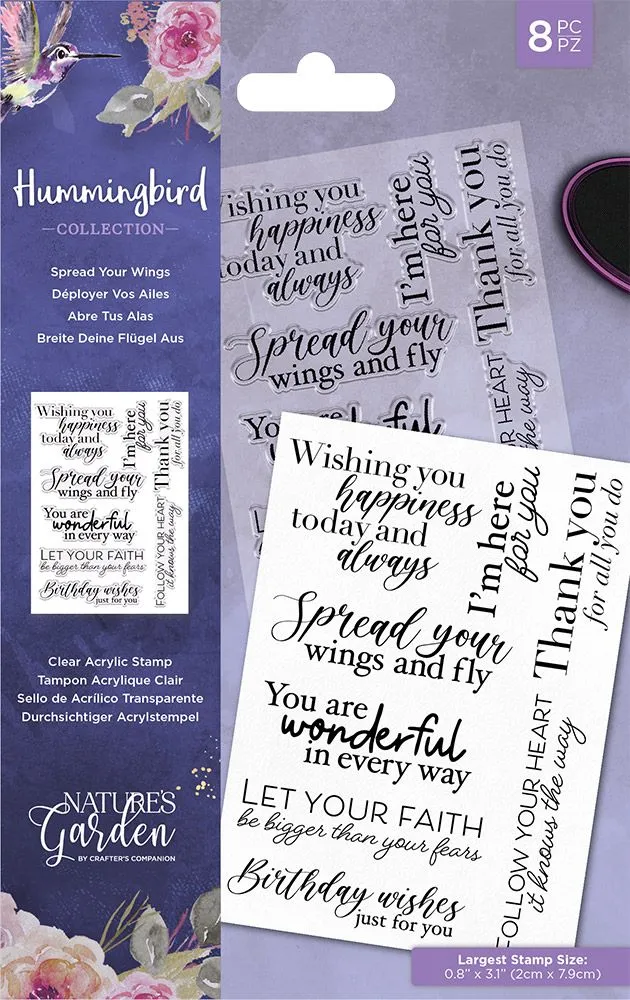 8 PC
PZ
Hummingbird
COLLECTION
Spread Your Wings
Déployer Vos Ailes
Abre Tus Alas
Breite Deine Flügel Aus
Wishing you
happiness
today and
always
I'm here
for you
Thank you
for all you do
Spread your
wings and fly
You are
wonderful
in every way
LET YOUR FAITH
be bigger than your fears
Birthday wishes
just for you
FOLLOW YOUR HEART
it knows the way
Clear Acrylic Stamp
Tampon Acrylique Clair
Sello de Acrílico Transparente
Durchsichtiger Acrylstempel
NATURE'S
Garden
BY CRAFTER'S COMPANION
ishing you
happiness
today and
always
I'm here
for you
Thank you
for all you do
Spread your
wings and fly
R HEART
the way
Wishing you
happiness
today and
always
I'm here
for you
Thank you
for all you do
Spread your
wings and fly
You are
wonderful
in every way
LET YOUR FAITH
be bigger than your fears
Birthday wishes
just for you
FOLLOW YOUR HEART
it knows the way
Largest Stamp Size:
0.8" x 3.1" (2cm x 7.9cm)